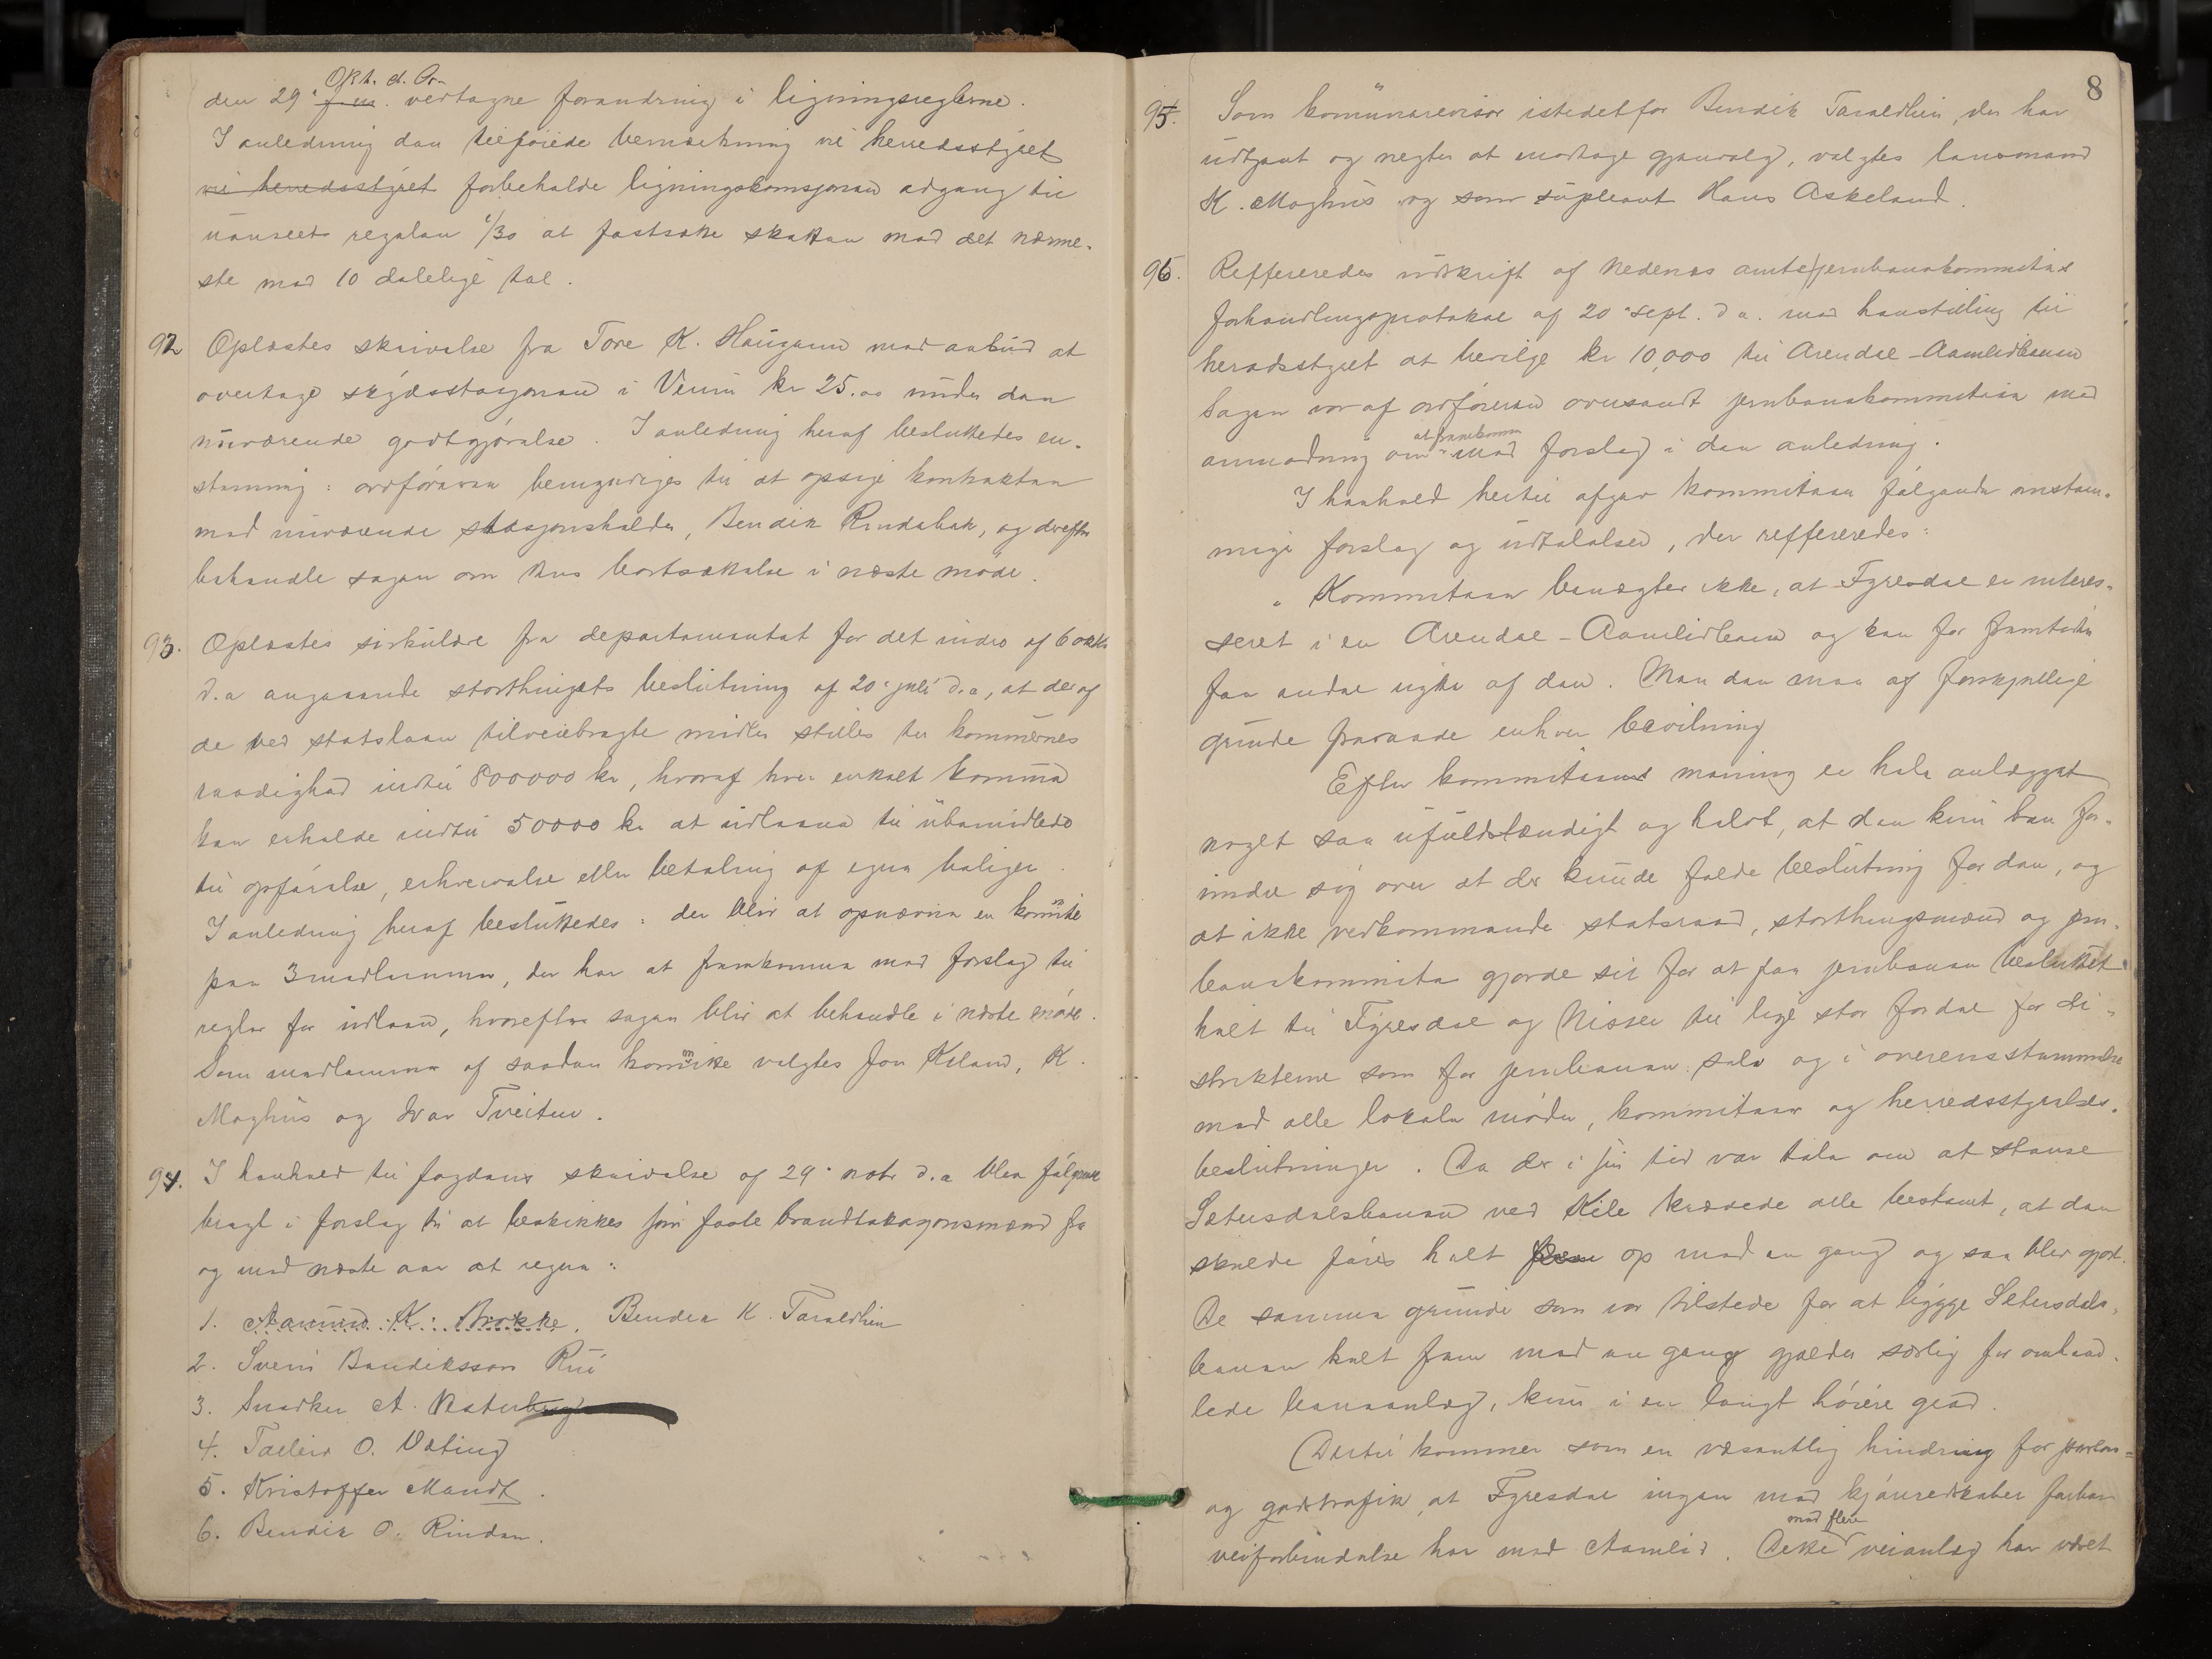 Okt. d. Ar.
den 29' f. m. vedtagne forandring i ligningsreglerne.
I anledning den tilføiede bemerkning vil herredsstyret
vil herredsstyret forbeholde ligningskomsjonen adgang til
uanseet regelen 1/30 at fastsætte skatten med det nærme-
ste med 10 delelige tal.
92 Oplæstes skrivelse fra Tore K. Haugann med anbud at
overtage skydsstasjonen i Veum kr 25.00 under den
nuværende godtgjørelse. I anledning heraf besluttedes en-
stemmig: ordføreren bemyndiges til at opsige kontrakten
med nuværende stasjonsholder, Bendik Rindebak, og derefter
behandle sagen om dens bortsettelse i næste møde.
93. Oplæstes sirkulære fra departementet for det indre af 6 okt
d.a angaaende storthingets beslutning af 20' juli d.a, at der af
de ved statslaan tilveiebragte midler stilles til kommunernes
raadighed indtil 800000 kr, hvoraf hver enkelt kommune
kan erholde indtil 50000 kr at udlaane til ubemidlede
til opførelse, erhvervelse eller betaling af egne boliger.
I anledning heraf besluttedes: der blir at opnævne en komite
paa 3 medlemmer, der har at fremkomme med forslag til
regler for udlaan, hvorefter sagen blir at behandle i næste møde.
Som medlemmer af saadan komite valgtes Jon Kiland, K.
Moghus og Ivar Tveiten.
94. I henhold til fogdens skrivelse af 29' nobr d.a blev følgende
bragt i forslag til at beskikkes som faste brandtaksasjonsmænd fra
og med næste aar at regne:
1. Aamund K. Brokke. Bendik K. Taraldlien
2. Svein Bendiksson Rui
3. Snorker A. Naterburg
4. Talleiv O. Veting
5. Kristoffer Mandt.
6. Bendik O. Rindan.
8
95. Som komunerevisor istedetfor Bendik Taraldlien, der har
udtjent og negter at modtage gjenvalg, valgtes lansmand
K. Moghus og som supleant Hans Askeland.
96. Reffereredes udskrift af Nedenes amts jernbanekommites
forhandlingsprotokol af 20' sept. d a. med henstilling til
heradsstyret at bevilge kr 10,000 til Arendal-Aamlidbanen
Sagen var af ordføreren oversendt jernbanekommiteen med
at fremkomme
anmodning om med forslag i den anledning.
I henhold hertil afgav kommiteen følgende enstem-
mige forslag og udtalelser, der reffereredes:
"Kommiteen benægter ikke, at Fyresdal er interes-
seret i en Arendal-Aamlidbane og kan for fremtiden
faa endel nytte af den. Men den maa af forskjellige
grunde fraraade enhver bevilning
Efter kommiteens mening er hele anlægget
noget saa ufuldstændigt og halvt, at den kun kan for-
undre sig over at der kunde falde beslutning for den, og
at ikke vedkommende statsraad, storthingsmænd og jern-
banekommite gjorde sit for at faa jernbanen besluttet
helt til Fyresdal og Nisser til lige stor fordel for di-
strikterne som for jernbanen selv og i overensstemmelse
med alle lokale møder, kommiteer og herredsstyrelses-
beslutninger. Da der i sin tid var tale om at stanse
Setersdalsbanen ved Kile krævede alle bestemt, at den
skulde føres helt frem op med en gang og saa blev gjort.
De samme grunde som var tilstede for at lægge Setersdals-
banen helt frem med en gang gjælder særlig for omhand-
lede baneanlæg, kun i en langt høiere grad.
Dertil kommer som en væsentlig hindring for person-
og godstrafik, at Fyresdal ingen med kjøreredskaber farbar
med flere
veiforbindelse har med Aamlid. Dette veianlæg har været